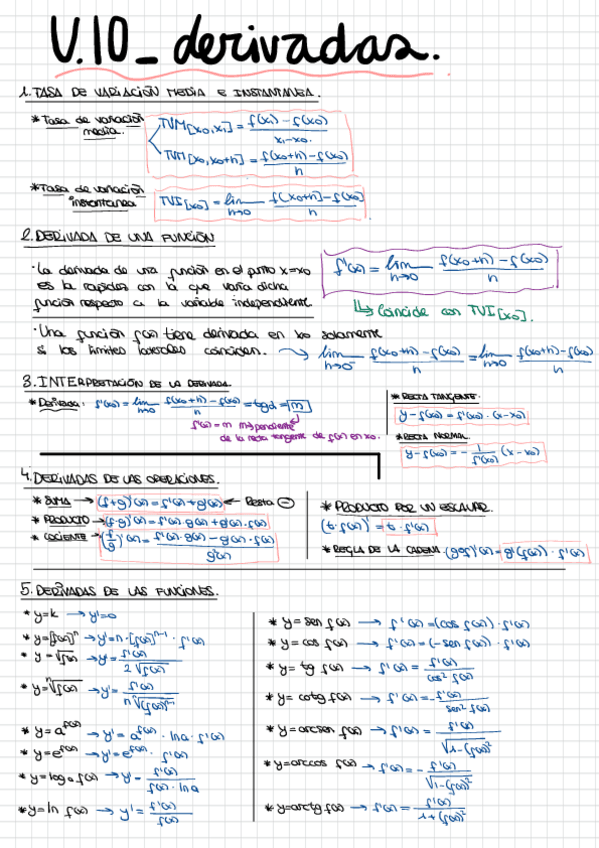 U.10_ derivadas.
1. TASA DE VARIACIÓN MEDIA E INSTANTANEA.
* Tasa de variación media.
TVM[x₀,x₁] = f(x₁) - f(x₀) / x₁-x₀.
TVM[x₀,x₀+h] = f(x₀+h) - f(x₀) / h
* Tasa de variación instantanea
TVI[x₀] = lim h→0 f(x₀+h) - f(x₀) / h
2. DERIVADA DE UNA FUNCIÓN
· La derivada de una función en el punto x=x₀
es la rapidez con la que varía dicha
función respecto a la variable independiente
f'(x) = lim h→0 f(x₀+h) - f(x₀) / h
↳ Coincide con TVI[x₀].
· Una función f(x) tiene derivada en x₀ solamente
si los límites laterales coinciden. → lim h→0⁻ f(x₀+h) - f(x₀) / h = lim h→0 f(x₀+h) - f(x₀) / h
3. INTERPRETACIÓN DE LA DERIVADA
* Derivada: f'(x) = lim h→0 f(x₀+h) - f(x₀) / h = tg α = m
f'(x) = m → pendiente
de la recta tangente de f(x) en x₀.
* RECTA TANGENTE·
y - f(x₀) = f'(x₀) · (x-x₀)
* RECTA NORMAL.
y - f(x₀) = - 1 / f'(x₀) (x-x₀)
4. DERIVADAS DE LAS OPERACIONES.
* SUMA → (f+g)'(x) = f'(x) + g'(x) ← Resta ⊖
* PRODUCTO → (f·g)'(x) = f'(x) · g(x) + g'(x) · f(x)
* COCIENTE → (f/g)'(x) = f'(x) · g(x) - g'(x) · f(x) / g²(x)
* PRODUCTO POR UN ESCALAR.
(t · f(x))' = t · f'(x)
* REGLA DE LA CADENA (g∘f)'(x) = g'(f(x)) · f'(x)
5. DERIVADAS DE LAS FUNCIONES.
* y=k → y'=0
* y=[f(x)]ⁿ → y'=n·[f(x)]ⁿ⁻¹ · f'(x)
* y=√f(x) → y'= f'(x) / 2√f(x)
* y=ⁿ√f(x) → y'= f'(x) / n ⁿ√(f(x))ⁿ⁻¹
* y=a^f(x) → y'= a^f(x) · ln a · f'(x)
* y=e^f(x) → y'= e^f(x) · f'(x)
* y=log a f(x) → y'= f'(x) / f(x) · ln a
* y=ln f(x) → y'= f'(x) / f(x)
* y= sen f(x) → f'(x) = (cos f(x)) · f'(x)
* y= cos f(x) → f'(x) = (-sen f(x)) · f'(x)
* y= tg f(x) → f'(x) = f'(x) / cos² f(x)
* y= cotg f(x) → f'(x) = - f'(x) / sen² f(x)
* y=arcsen f(x) → f'(x) = f'(x) / √1-(f(x))²
* y=arccos f(x) → f'(x) = - f'(x) / √1-(f(x))²
* y=arctg f(x) → f'(x) = f'(x) / 1+(f(x))²